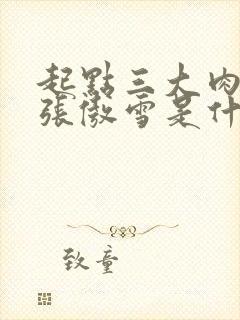 起點三大肉
張傲雪是什
致童